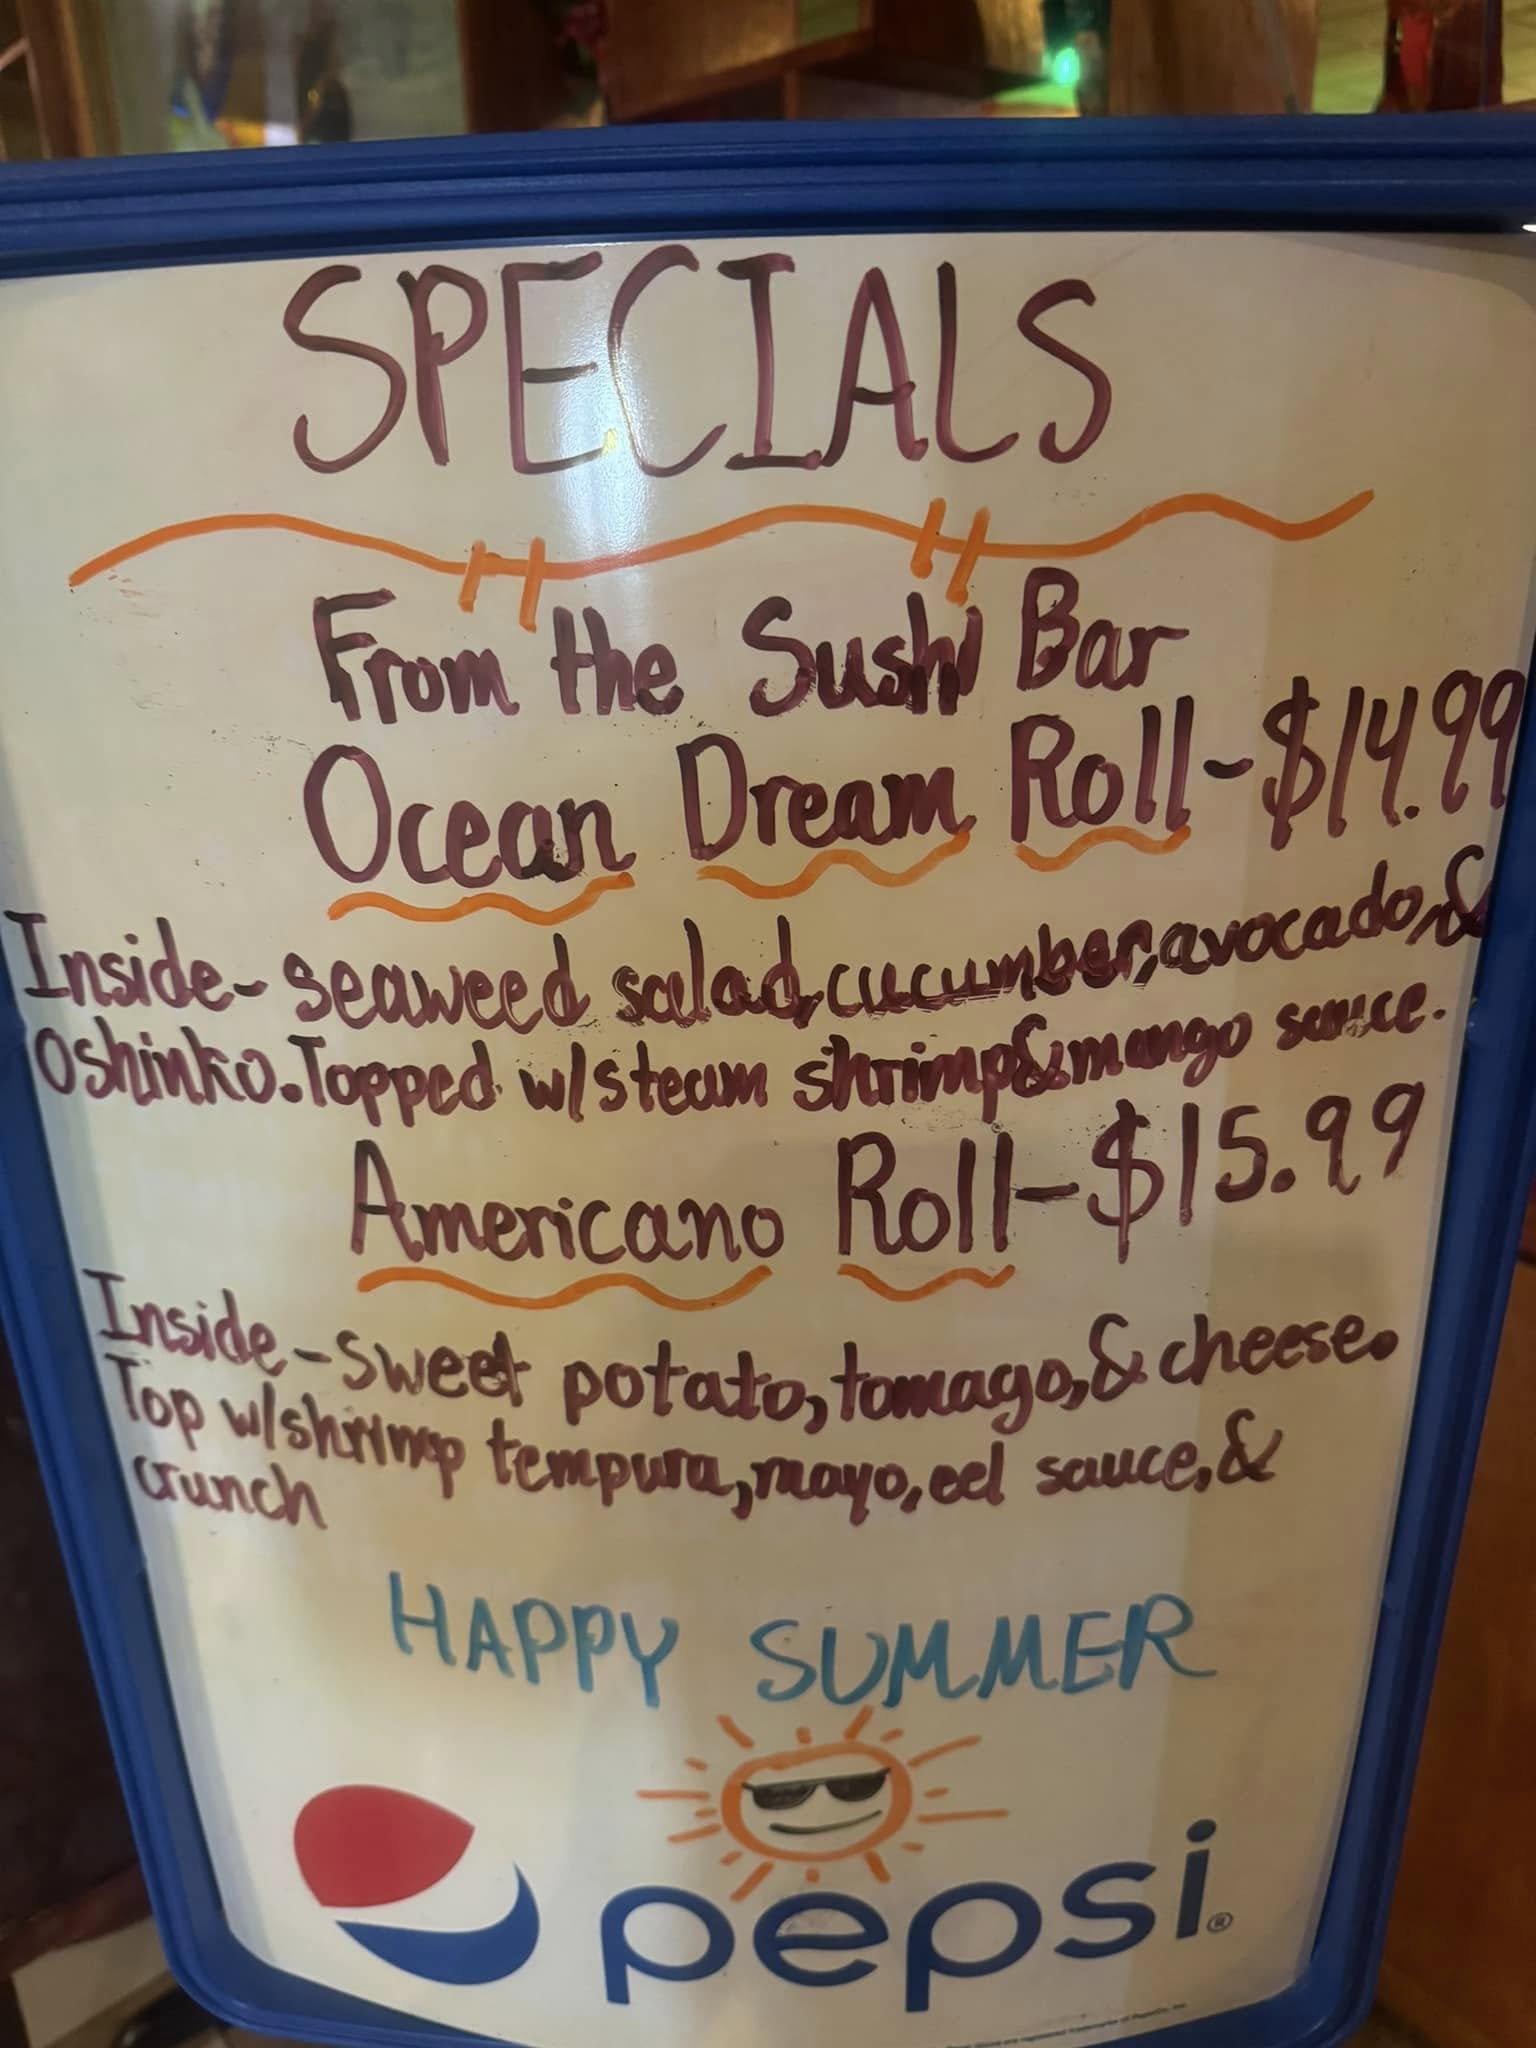 SPECIALS
From the Sushi Bar
Ocean Dream Roll-$14.99
Inside-seaweed salad,cucumber,avocado,&
Oshinko.Topped w/steam shrimp&mango sauce.
Americano Roll-$15.99
Inside-sweet potato,tomago,&cheese.
Top w/shrimp tempura,mayo,eel sauce,&
crunch
HAPPY SUMMER
pepsi®